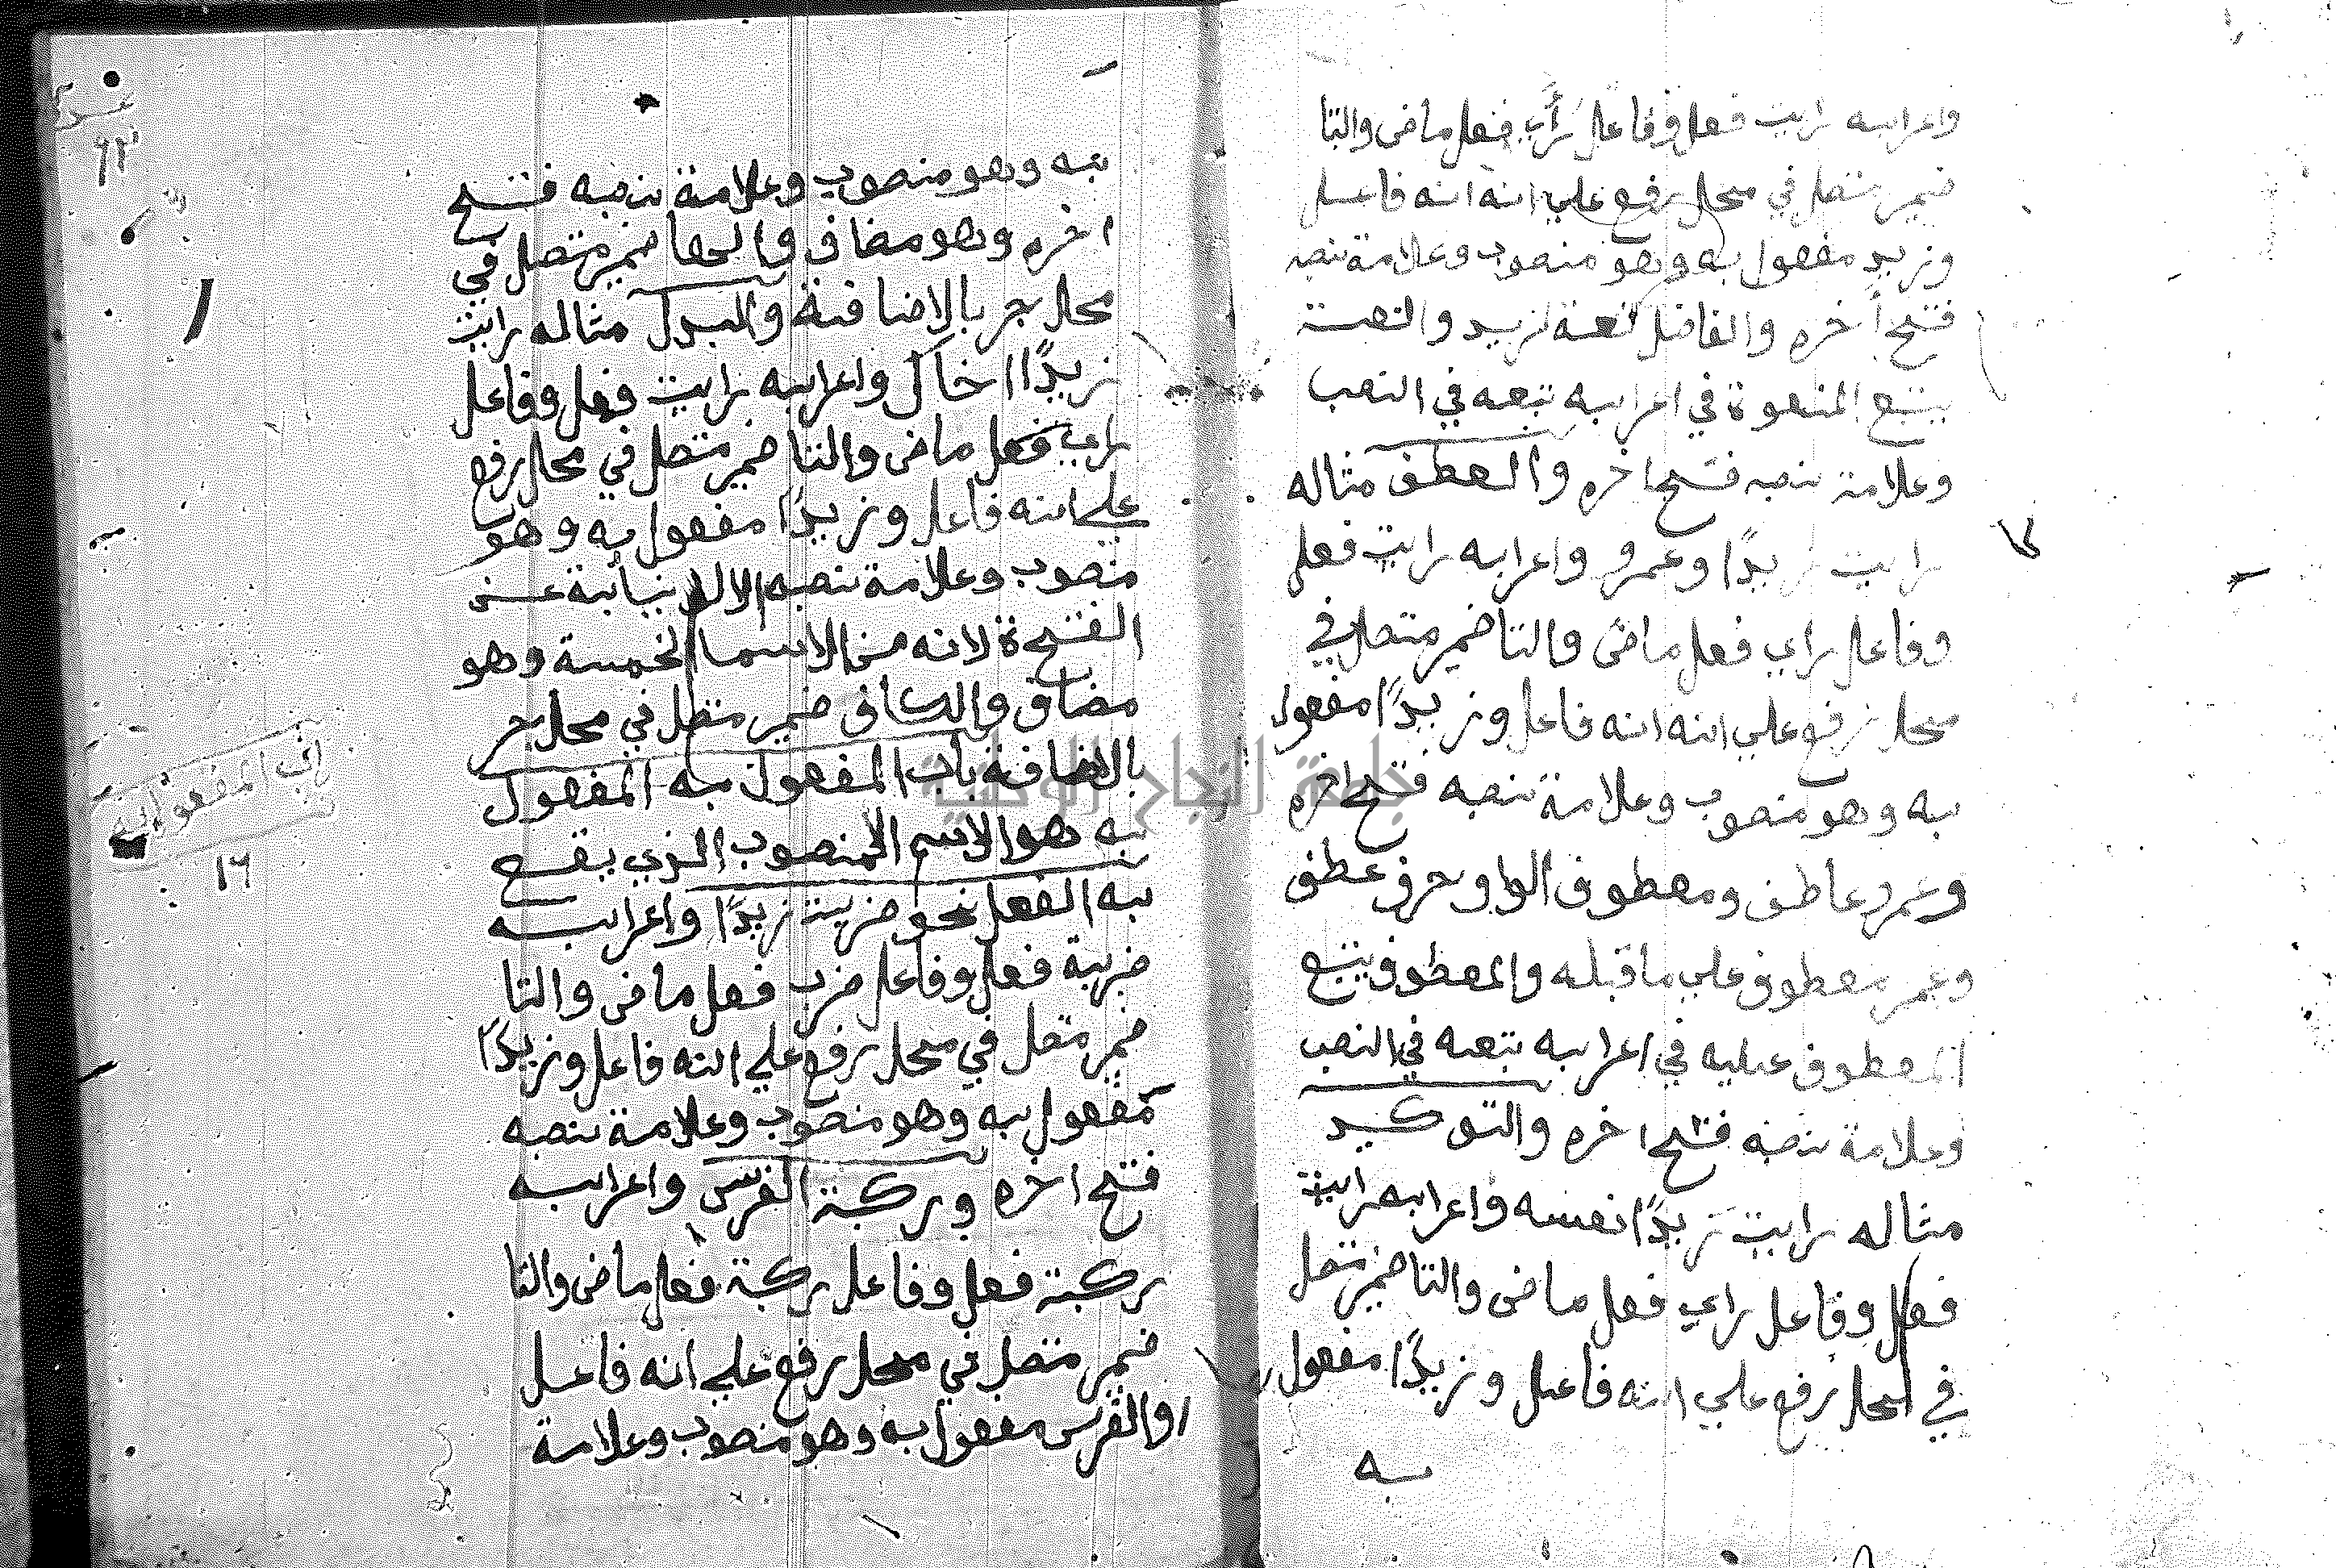 واعرابه رايت فعل وفاعل رأي فعل ماضى والتا
ضمير متصل في محل رفع علي انه انه فاعل
وزيد مفعول به وهو منصوب وعلامة نصبه
فتح أخره والفاضل نعة لزيد والنعت
يتبع المنعوة في اعرابه تبعه في النصب
وعلامة نصبه فتح اخره والعطف مثاله
رايت زيدًا وعمرو واعرابه رايت فعل
وفاعل راي فعل ماضى والتا ضمير متصل في
محل رفع علي انه انه فاعل وزيدًا مفعول
به وهو منصوب وعلامة نصبه فتح اخره
وعمرو عاطف ومعطوف الواو حرف عطف
وعمر معطوف علي ما قبله والمعطوف يتبع
المعطوف عليه في اعرابه تبعه في النصب
وعلامة نصبه فتح اخره والتوكيد
مثاله رايت زيدًا نفسه واعرابه رايت
فعل وفاعل راي فعل ماضى والتا ضمير متصل
في محل رفع علي انه فاعل وزيدًا مفعول
به
به وهو منصوب وعلامة نصبه فتح
اخره وهو مضاف والها ضمير متصل في
محل جر بالاضافة والبدل مثاله رايت
زيدًا اخاك واعرابه رايت فعل وفاعل
راي فعل ماضى والتا ضمير متصل في محل رفع
علي انه فاعل وزيدًا مفعول به وهو
منصوب وعلامة نصبه الالف نيابة عن
الفتحة لانه من الاسما الخمسة وهو
مضاف والكاف ضمير متصل في محل جر
بالاضافة باب المفعول به المفعول
به هو الاسم المنصوب الذي يقع
به الفعل نحو ضربت زيدًا واعرابه
ضربة فعل وفاعل ضرب فعل ماضى والتا
ضمير متصل في محل رفع علي انه فاعل وزيدًا
مفعول به وهو منصوب وعلامة نصبه
فتح اخره وركبة الفرس واعرابه
ركبة فعل وفاعل ركبة فعل ماضى والتا
ضمير متصل في محل رفع علي انه فاعل
والفرس مفعول به وهو منصوب وعلامة
١٦
جامعة النجاح الوطنية